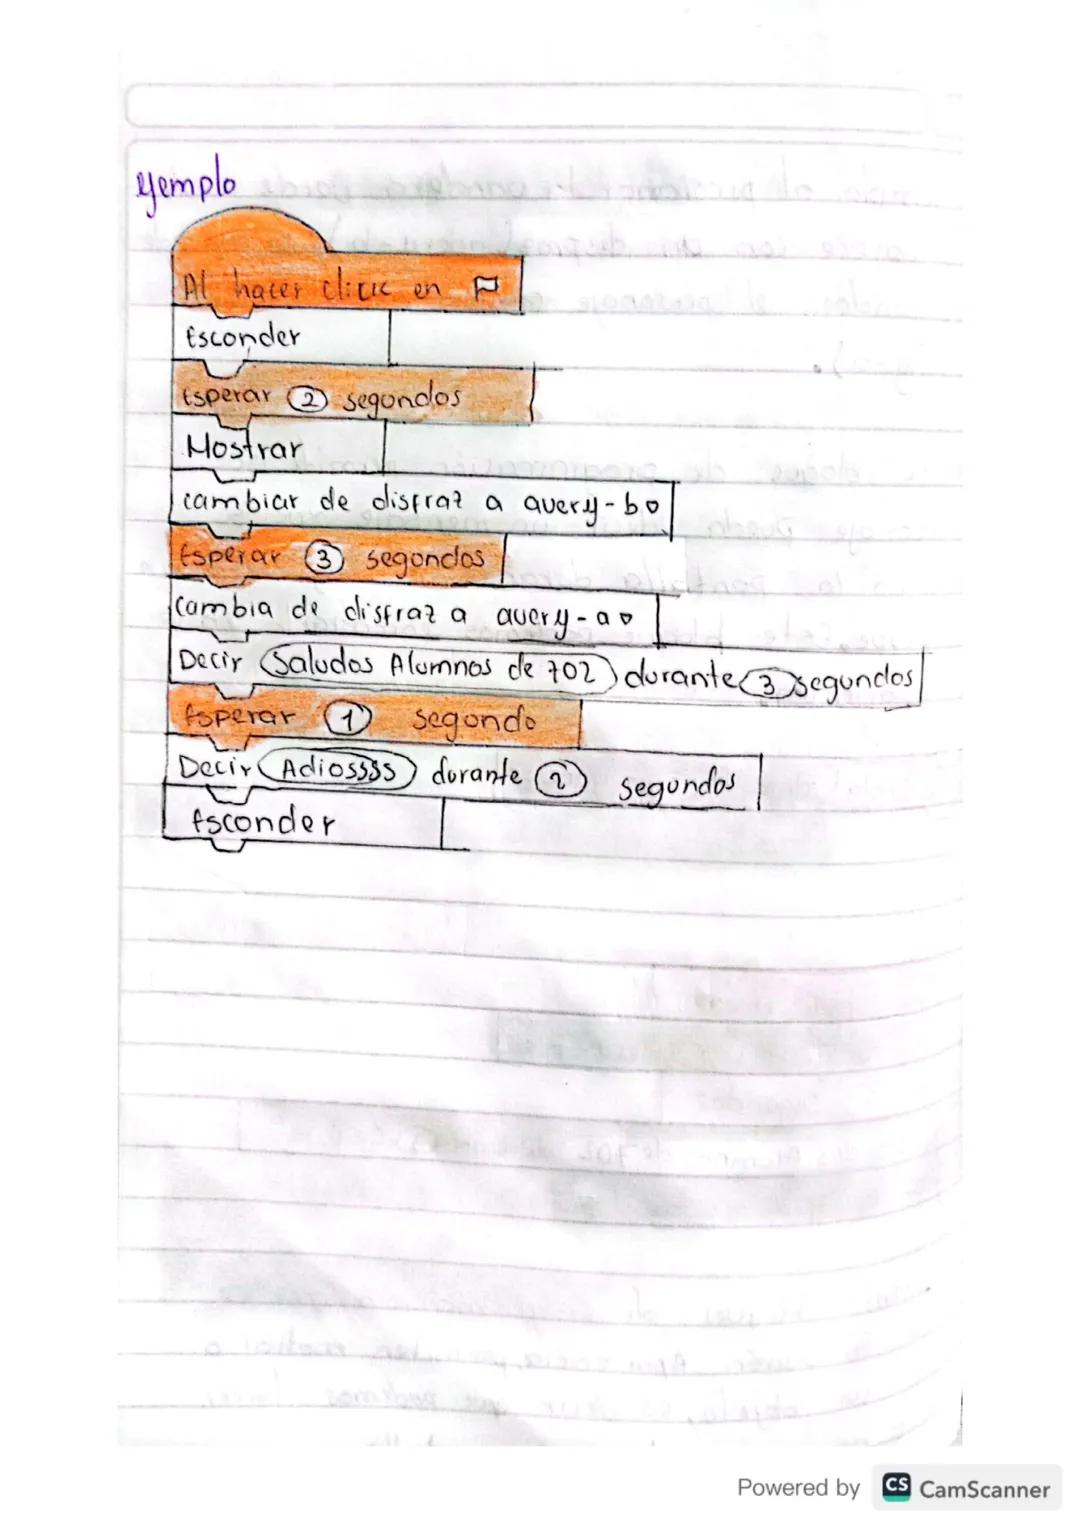 ejemplo
Al hacer click en
Esconder
Esperar 2 segundos
Mostrar
cambiar de disfraz a avery-b
Esperar 3 segundos
cambia de disfraz a avery-a
Decir Saludos Alumnos de 702 durante 3 segundos
Esperar 1 segundo
Decir Adiossss durante 2 segundos
Esconder
Powered by CS CamScanner